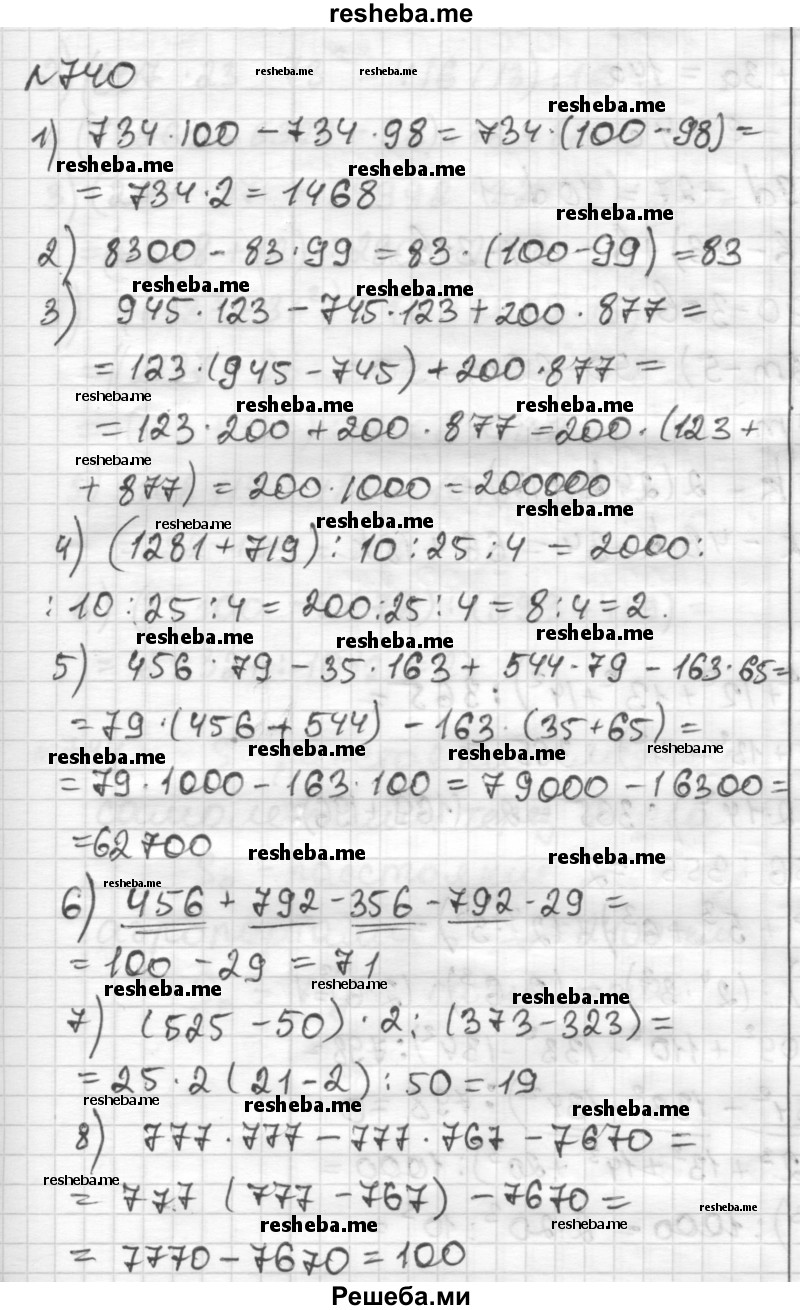 resheba.me
№740
resheba.me resheba.me
resheba.me
1) 734·100 − 734·98 = 734·(100 − 98) =
resheba.me resheba.me
= 734·2 = 1468
resheba.me
2) 8300 − 83·99 = 83·(100−99) = 83
resheba.me resheba.me
3) 945·123 − 745·123 + 200·877 =
= 123·(945 − 745) + 200·877 =
resheba.me resheba.me resheba.me
= 123·200 + 200·877 = 200·(123 +
resheba.me
+ 877) = 200·1000 = 200000
resheba.me resheba.me resheba.me
4) (1281 + 719) : 10 : 25 : 4 = 2000 :
: 10 : 25 : 4 = 200 : 25 : 4 = 8 : 4 = 2.
resheba.me resheba.me resheba.me
5) 456·79 − 35·163 + 544·79 − 163·65 =
= 79·(456 + 544) − 163·(35 + 65) =
resheba.me resheba.me resheba.me resheba.me
= 79·1000 − 163·100 = 79000 − 16300 =
= 62700
resheba.me resheba.me
resheba.me
6) 456 + 792 − 356 − 792 − 29 =
= 100 − 29 = 71
resheba.me resheba.me resheba.me
7) (525 − 50)·2 : (373 − 323) =
= 25·2 (21 − 2) : 50 = 19
resheba.me resheba.me resheba.me
8) 777·777 − 777·767 − 7670 =
resheba.me
= 777 (777 − 767) − 7670 =
resheba.me
resheba.me resheba.me
= 7770 − 7670 = 100
Решеба.ми